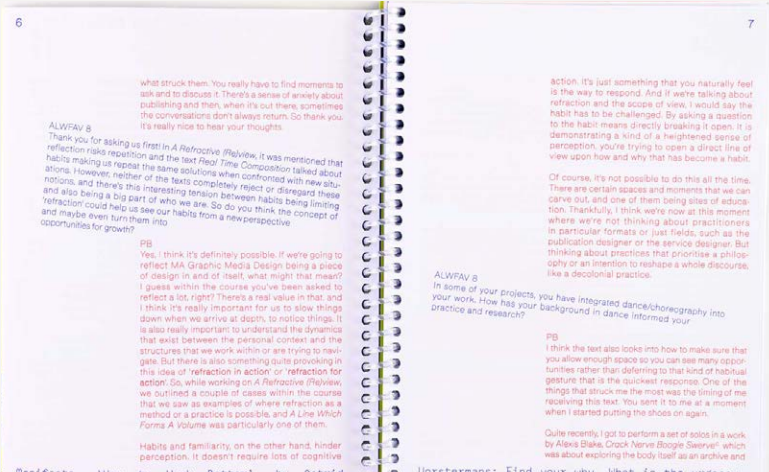 6
what struck them. You really have to find moments to
ask and to discuss it. There's a sense of anxiety about
publishing and then, when it's out there, sometimes
the conversations don't always return. So thank you.
It's really nice to hear your thoughts.
ALWFAV 8
Thank you for asking us first! In A Refractive (Re)view, it was mentioned that
reflection risks repetition and the text Real Time Composition talked about
habits making us repeat the same solutions when confronted with new situ-
ations. However, neither of the texts completely reject or disregard these
notions, and there's this interesting tension between habits being limiting
and also being a big part of who we are. So do you think the concept of
'refraction' could help us see our habits from a new perspective
and maybe even turn them into
opportunities for growth?
PB
Yes, I think it's definitely possible. If we're going to
reflect MA Graphic Media Design being a piece
of design in end of itself, what might that mean?
I guess within the course you've been asked to
reflect a lot, right? There's a real value in that, and
I think it's really important for us to slow things
down when we arrive at depth, to notice things. It
is also really important to understand the dynamics
that exist between the personal context and the
structures that we work within or are trying to navi-
gate. But there is also something quite provoking in
this idea of 'refraction in action' or 'refraction for
action'. So, while working on A Refractive (Re)view,
we outlined a couple of cases within the course
that we saw as examples of where refraction as a
method or a practice is possible, and A Line Which
Forms A Volume was particularly one of them.
Habits and familiarity, on the other hand, hinder
perception. It doesn't require lots of cognitive
7
action. It's just something that you naturally feel
is the way to respond. And if we're talking about
refraction and the scope of view, I would say the
habit has to be challenged. By asking a question
to the habit means directly breaking it open. It is
demonstrating a kind of a heightened sense of
perception, you're trying to open a direct line of
view upon how and why that has become a habit.
Of course, it's not possible to do this all the time.
There are certain spaces and moments that we can
carve out, and one of them being sites of educa-
tion. Thankfully, I think we're now at this moment
where we're not thinking about practitioners
in particular formats or just fields, such as the
publication designer or the service designer. But
thinking about practices that prioritise a philos-
ophy or an intention to reshape a whole discourse,
like a decolonial practice.
ALWFAV 8
In some of your projects, you have integrated dance/choreography into
your work. How has your background in dance informed your
practice and research?
PB
I think the text also looks into how to make sure that
you allow enough space so you can see many oppor-
tunities rather than deferring to that kind of habitual
gesture that is the quickest response. One of the
things that struck me the most was the timing of me
receiving this text. You sent it to me at a moment
when I started putting the shoes on again.
Quite recently, I got to perform a set of solos in a work
by Alexis Blake, Crack Nerve Boogie Swerve, which
was about exploring the body itself as an archive and
Find your why. What